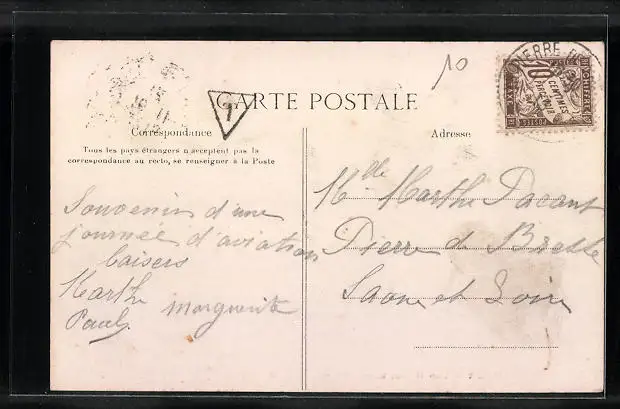 10
CARTE POSTALE
T
Correspondance
Adresse
Tous les pays étrangers n'acceptent pas la
correspondance au recto, se renseigner à la Poste
10
CENTIMES
A PERCEVOIR
POSTES
Souvenir d'une
journée d'aviation
baisers
Marthe Marguerite
Paul
Mlle Marthe
Pierre de Bresse
Saone et Loire